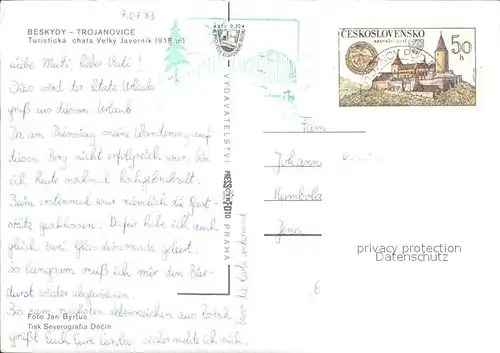 9.07.83
BESKYDY – TROJANOVICE
Turistická chata Velký Javorník (918 m)
Liebe Mutti, lieber Vati!
Dies wird der letzte Urlaubs
gruß aus diesem Urlaub
Da am Dienstag meine Wanderung auf
diesen Berg nicht erfolgreich war, bin
ich heute nochmal hochgekraxelt.
Beim erstenmal war nämlich die Gast-
stätte geschlossen. Dafür habe ich auch
gleich zwei Glas Limonade geleert.
So langsam muß ich mir den Bier-
durst wieder abgewöhnen.
Bis zum nächsten Lebenszeichen aus
grüßt Euch Eure
sicher melde ich mich
Foto Jan Byrtus
Tisk Severografia Děčín
VYDAVATELSTVÍ
PRESSFOTO
PRAHA
die Karte ankommt
Kčs 0,20
ČESKOSLOVENSKO
50 h
Fam
Johann
Humbola
Jena
6
privacy protection
Datenschutz